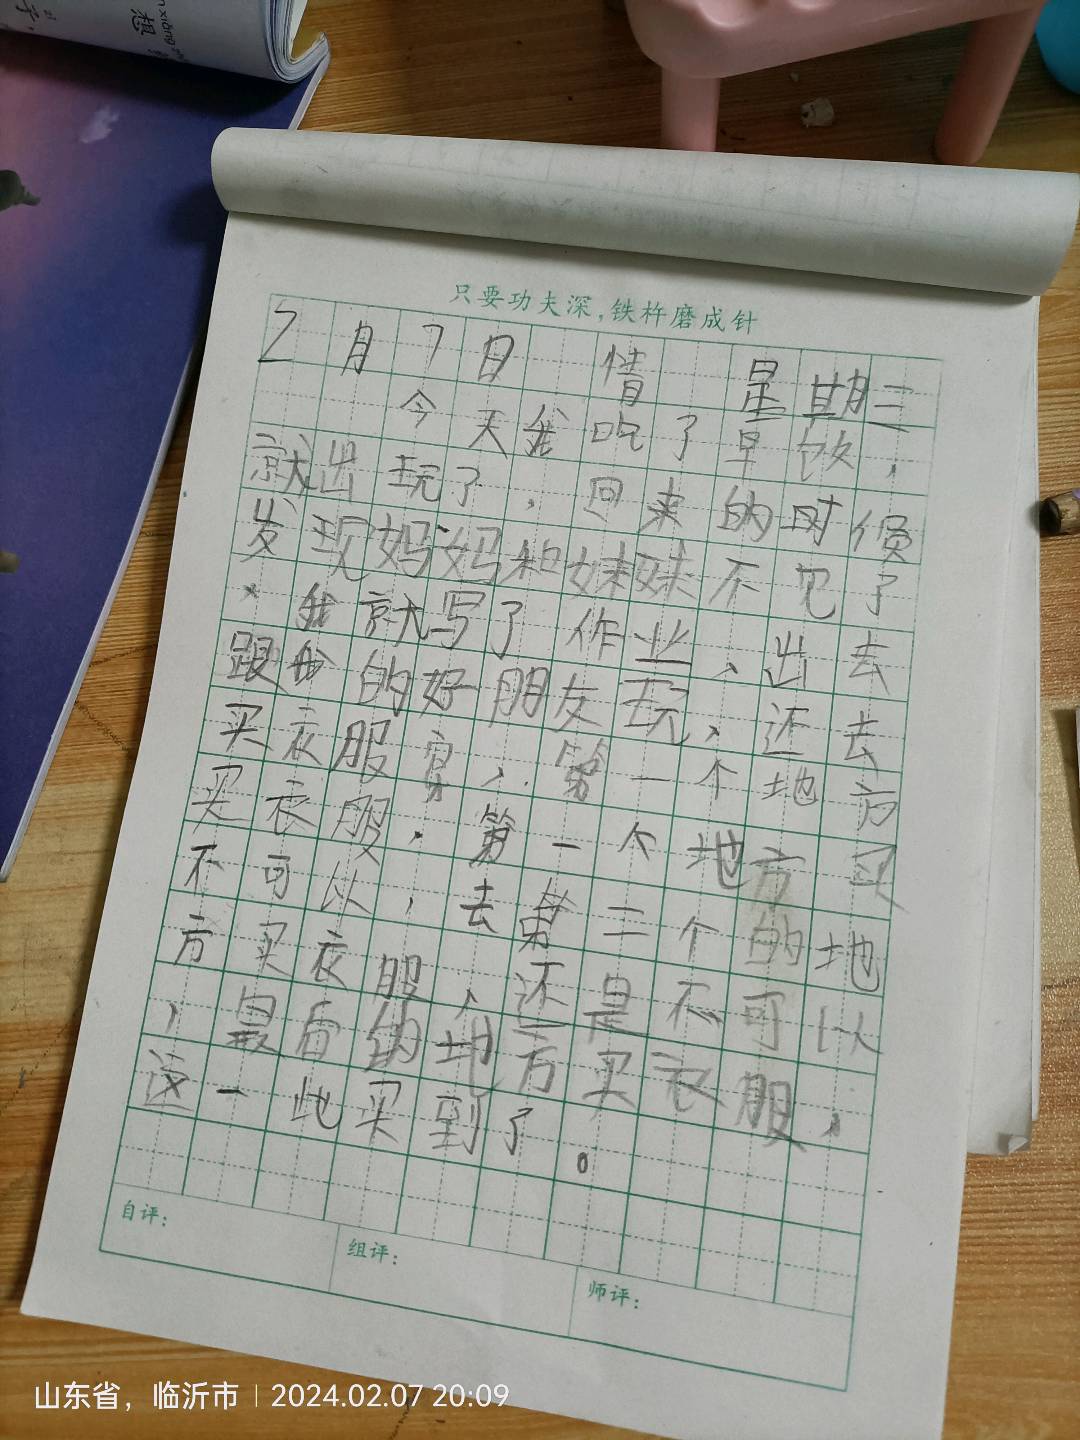 想
只要功夫深，铁杵磨成针
2月7日 情 星期三
今天我吃了早饭，
就出玩了，回来的时候
发现妈妈和妹妹不见了
、我就写了作业、出去
跟我的好朋友玩、还去
买衣服、第一个地方
买衣服．第一个地方买
不可以，去第二个的地
方买衣服、还是不可以
，最后的地方买衣服，
这一此买到了。
自评：
组评：
师评：
山东省，临沂市 | 2024.02.07 20:09